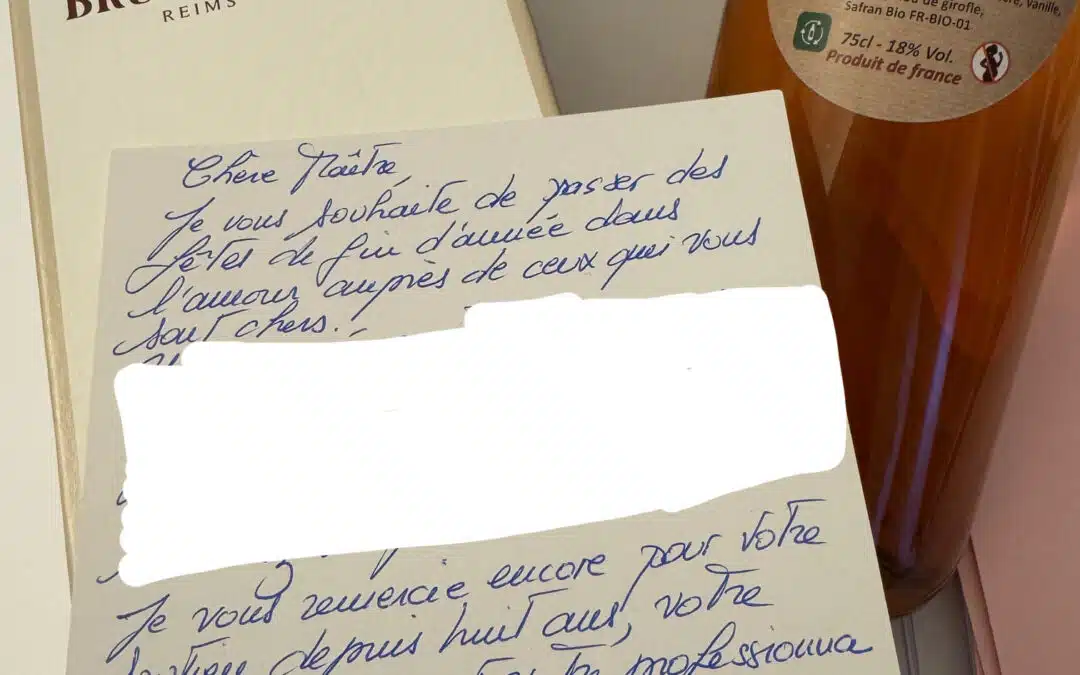 REIMS
vanille,
de girofle,
Safran Bio FR-BIO-01
75cl - 18% Vol.
Produit de france
Chère Maître,
Je vous souhaite de passer des
fêtes de fin d'année dans
l'amour auprès de ceux qui vous
sont chers.
Je vous remercie encore pour votre
depuis huit ans, votre